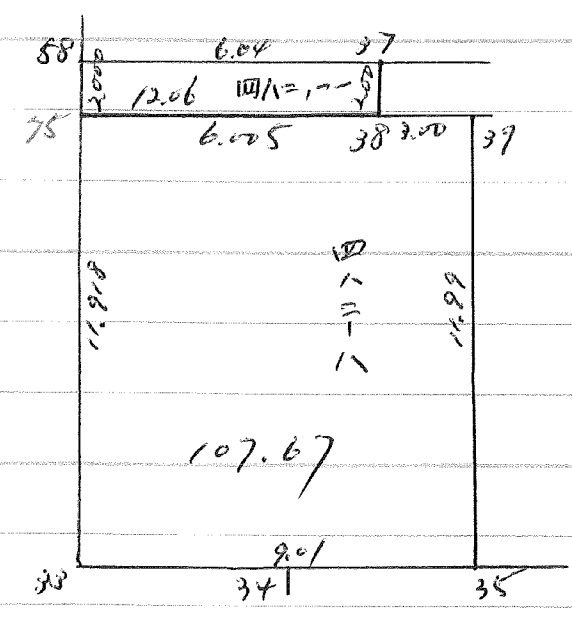 58 6.04 37
2.000 12.06 四八二,一一 2.00
75 6.005 38 3.00 39
11.918 四八二一八 11.99
107.67
9.01
33 34 35